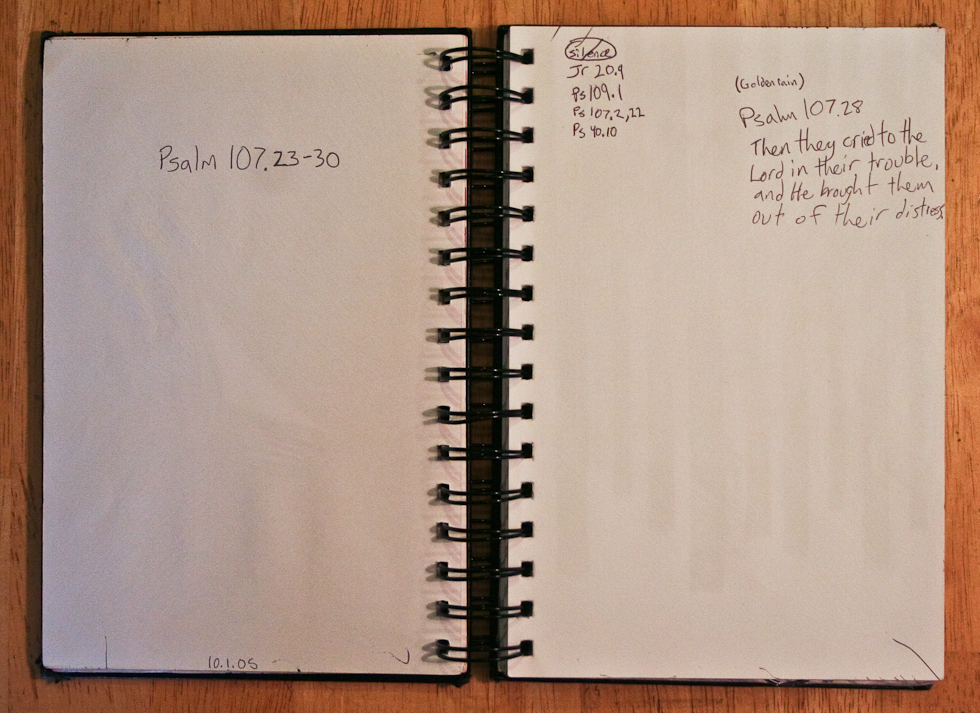 Psalm 107.23-30
10.1.05
silence
Jr 20.9
Ps 109.1
Ps 107.2,22
Ps 40.10
(Goldenrain)
Psalm 107.28
Then they cried to the
Lord in their trouble,
and He brought them
out of their distress